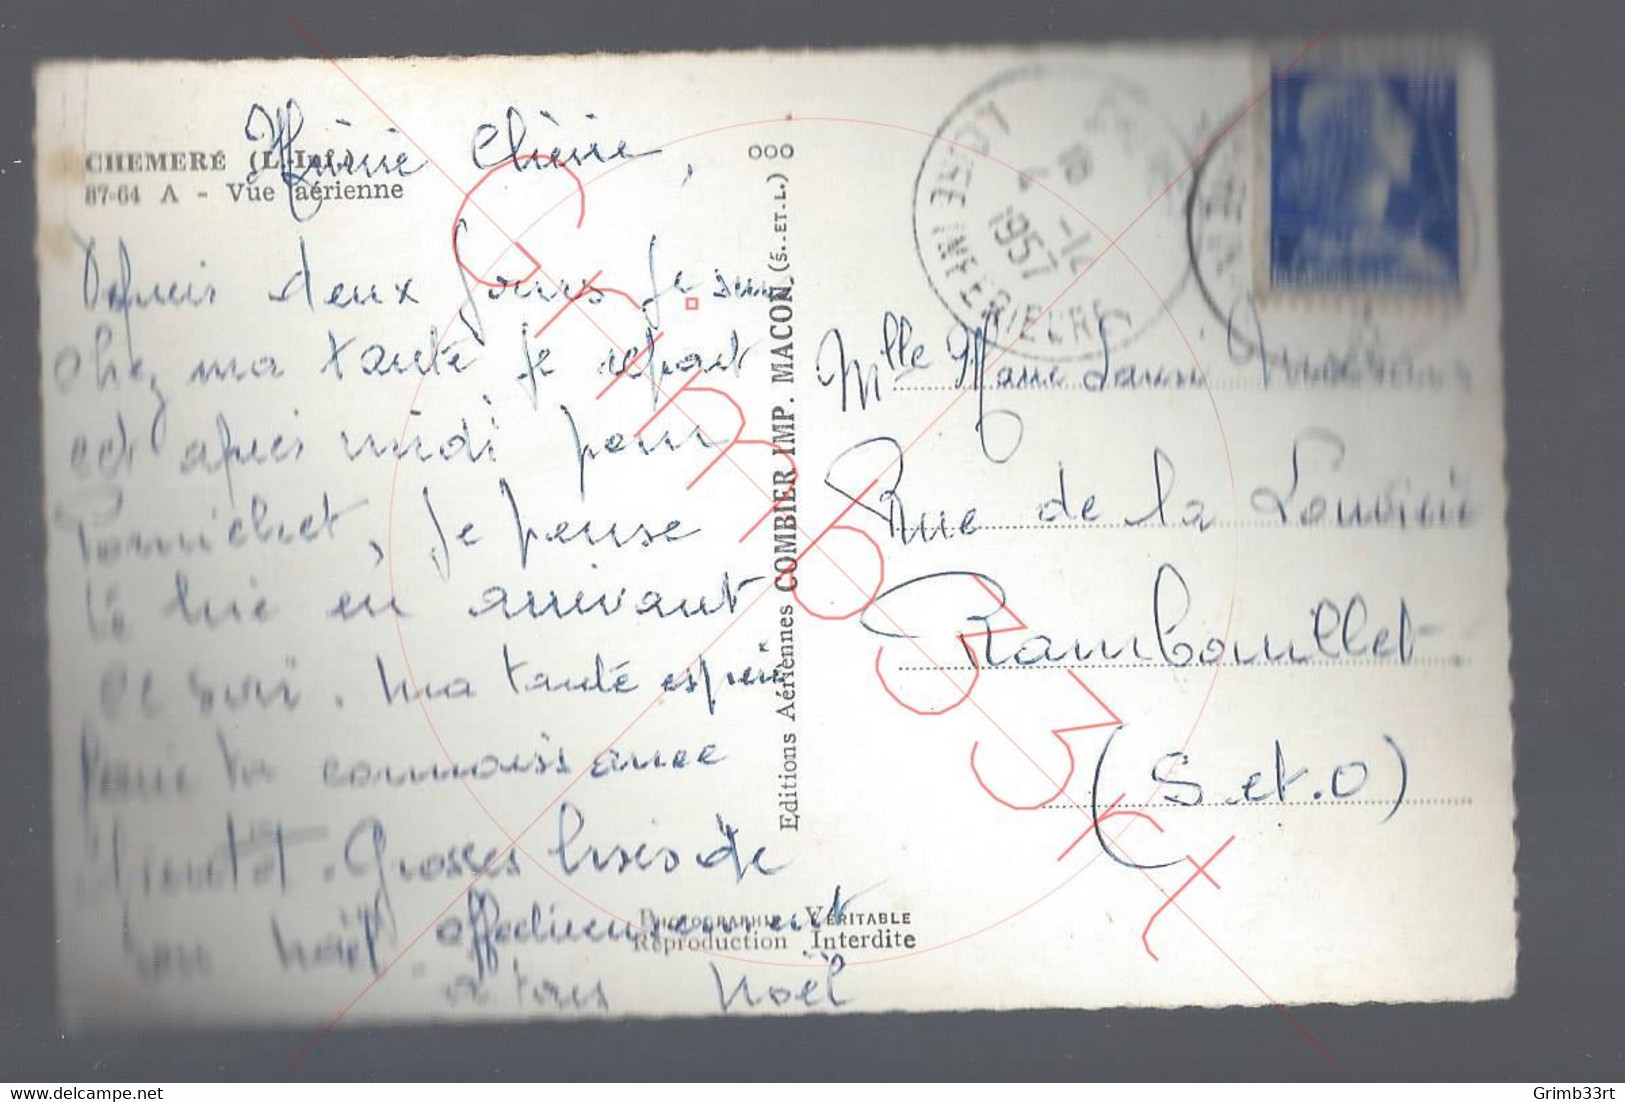 CHEMERÉ (L.-Inf.)
87-64 A - Vue aérienne
Chérie,
Depuis deux jours je suis
chez ma tante je repart
cet après midi pour
Pornichet, je pense
te lire en arrivant
ce soir. Ma tante espère
faire ta connaissance
bientôt. Grosses bises de
ton Noël affectueusement
a toi Noël
Editions Aériennes COMBIER IMP. MACON (S.-ET-L.)
OOO
PHOTOGRAPHIE VÉRITABLE
Reproduction Interdite
LOIRE INFERIEURE
18
4 -12
1957
Mlle Marie
Rue de la Louvière
Rambouillet
(S et. O)
Grimb33rt
delcampe.net
Grimb33rt